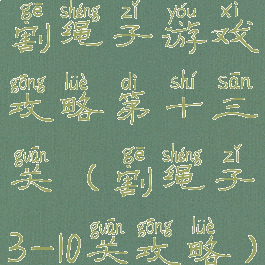 gē shéng zǐ yóu xì
割绳子游戏
gōng lüè dì shí sān
攻略第十三
guān gē shéng zǐ
关（割绳子
guān gōng lüè
3-10关攻略）